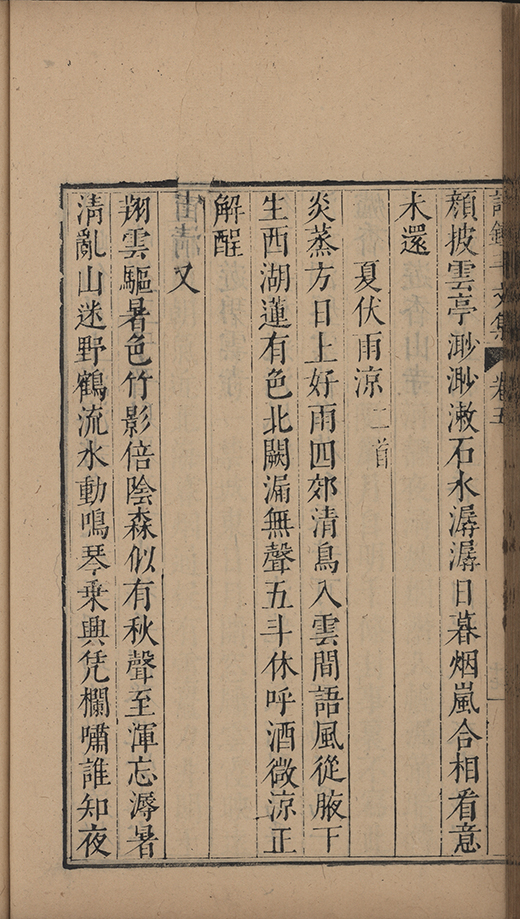 卷五
顏披雲亭渺渺漱石水潺潺日暮烟嵐合相看意
未還
夏伏雨涼二首
炎蒸方日上好雨四郊清鳥入雲間語風從腋下
生西湖蓮有色北闕漏無聲五斗休呼酒微涼正
解酲
又
翔雲驅暑色竹影倍陰森似有秋聲至渾忘溽暑
清亂山迷野鶴流水動鳴琴乗興凭欄嘯誰知夜